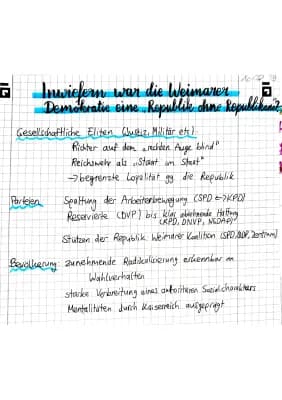 Inwiefern war die Weimarer
Demokratie eine „Republik ohne Republikaner"?
Gesellschaftliche Eliten (Justiz, Militär etc.)
Richter auf dem „rechten Auge blind"
Reichswehr als „Staat im Staat"
→ begrenzte Loyalität gg. die Republik
Parteien
Spaltung der Arbeiterbewegung (SPD ↔ KPD)
Reservierte (DVP) bis klar ablehnende Haltung
(KPD, DNVP, NSDAP)
Stützen der Republik: Weimarer Koalition (SPD, DDP, Zentrum)
Bevölkerung: zunehmende Radikalisierung erkennbar im
Wahlverhalten
starke Verbreitung eines autoritären Sozialcharakters
Mentalitäten durch Kaiserreich ausgeprägt